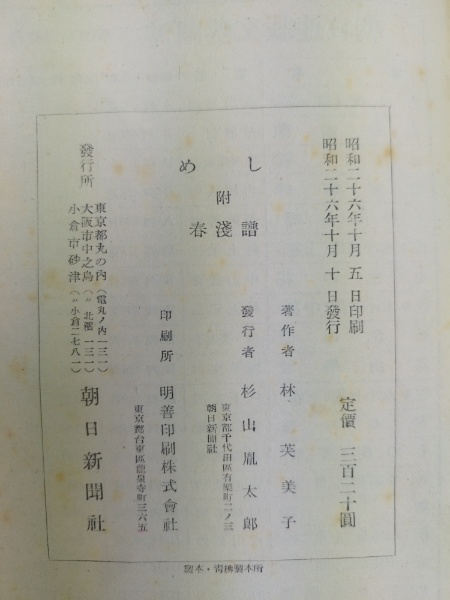 昭和二十六年十月五日印刷
昭和二十六年十月十日發行
定價 三百二十圓
めし
附
春淺譜
著作者 林芙美子
發行者 杉山胤太郎
東京都千代田區有樂町二ノ三
朝日新聞社
印刷所 明善印刷株式會社
東京都台東區龍泉寺町三六五
發行所
東京都丸の內(電丸ノ內一三一)
大阪市中之島(〃北濱一三一)
小倉市砂津(〃小倉二七八一)
朝日新聞社
製本・青柳製本所